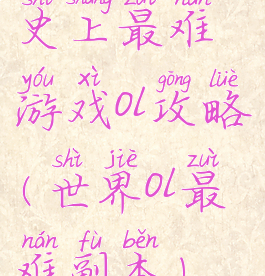 shǐ shàng zuì nán
史上最难
yóu xì gōng lüè
游戏ol攻略
shì jiè zuì
(世界ol最
nán fù běn
难副本)